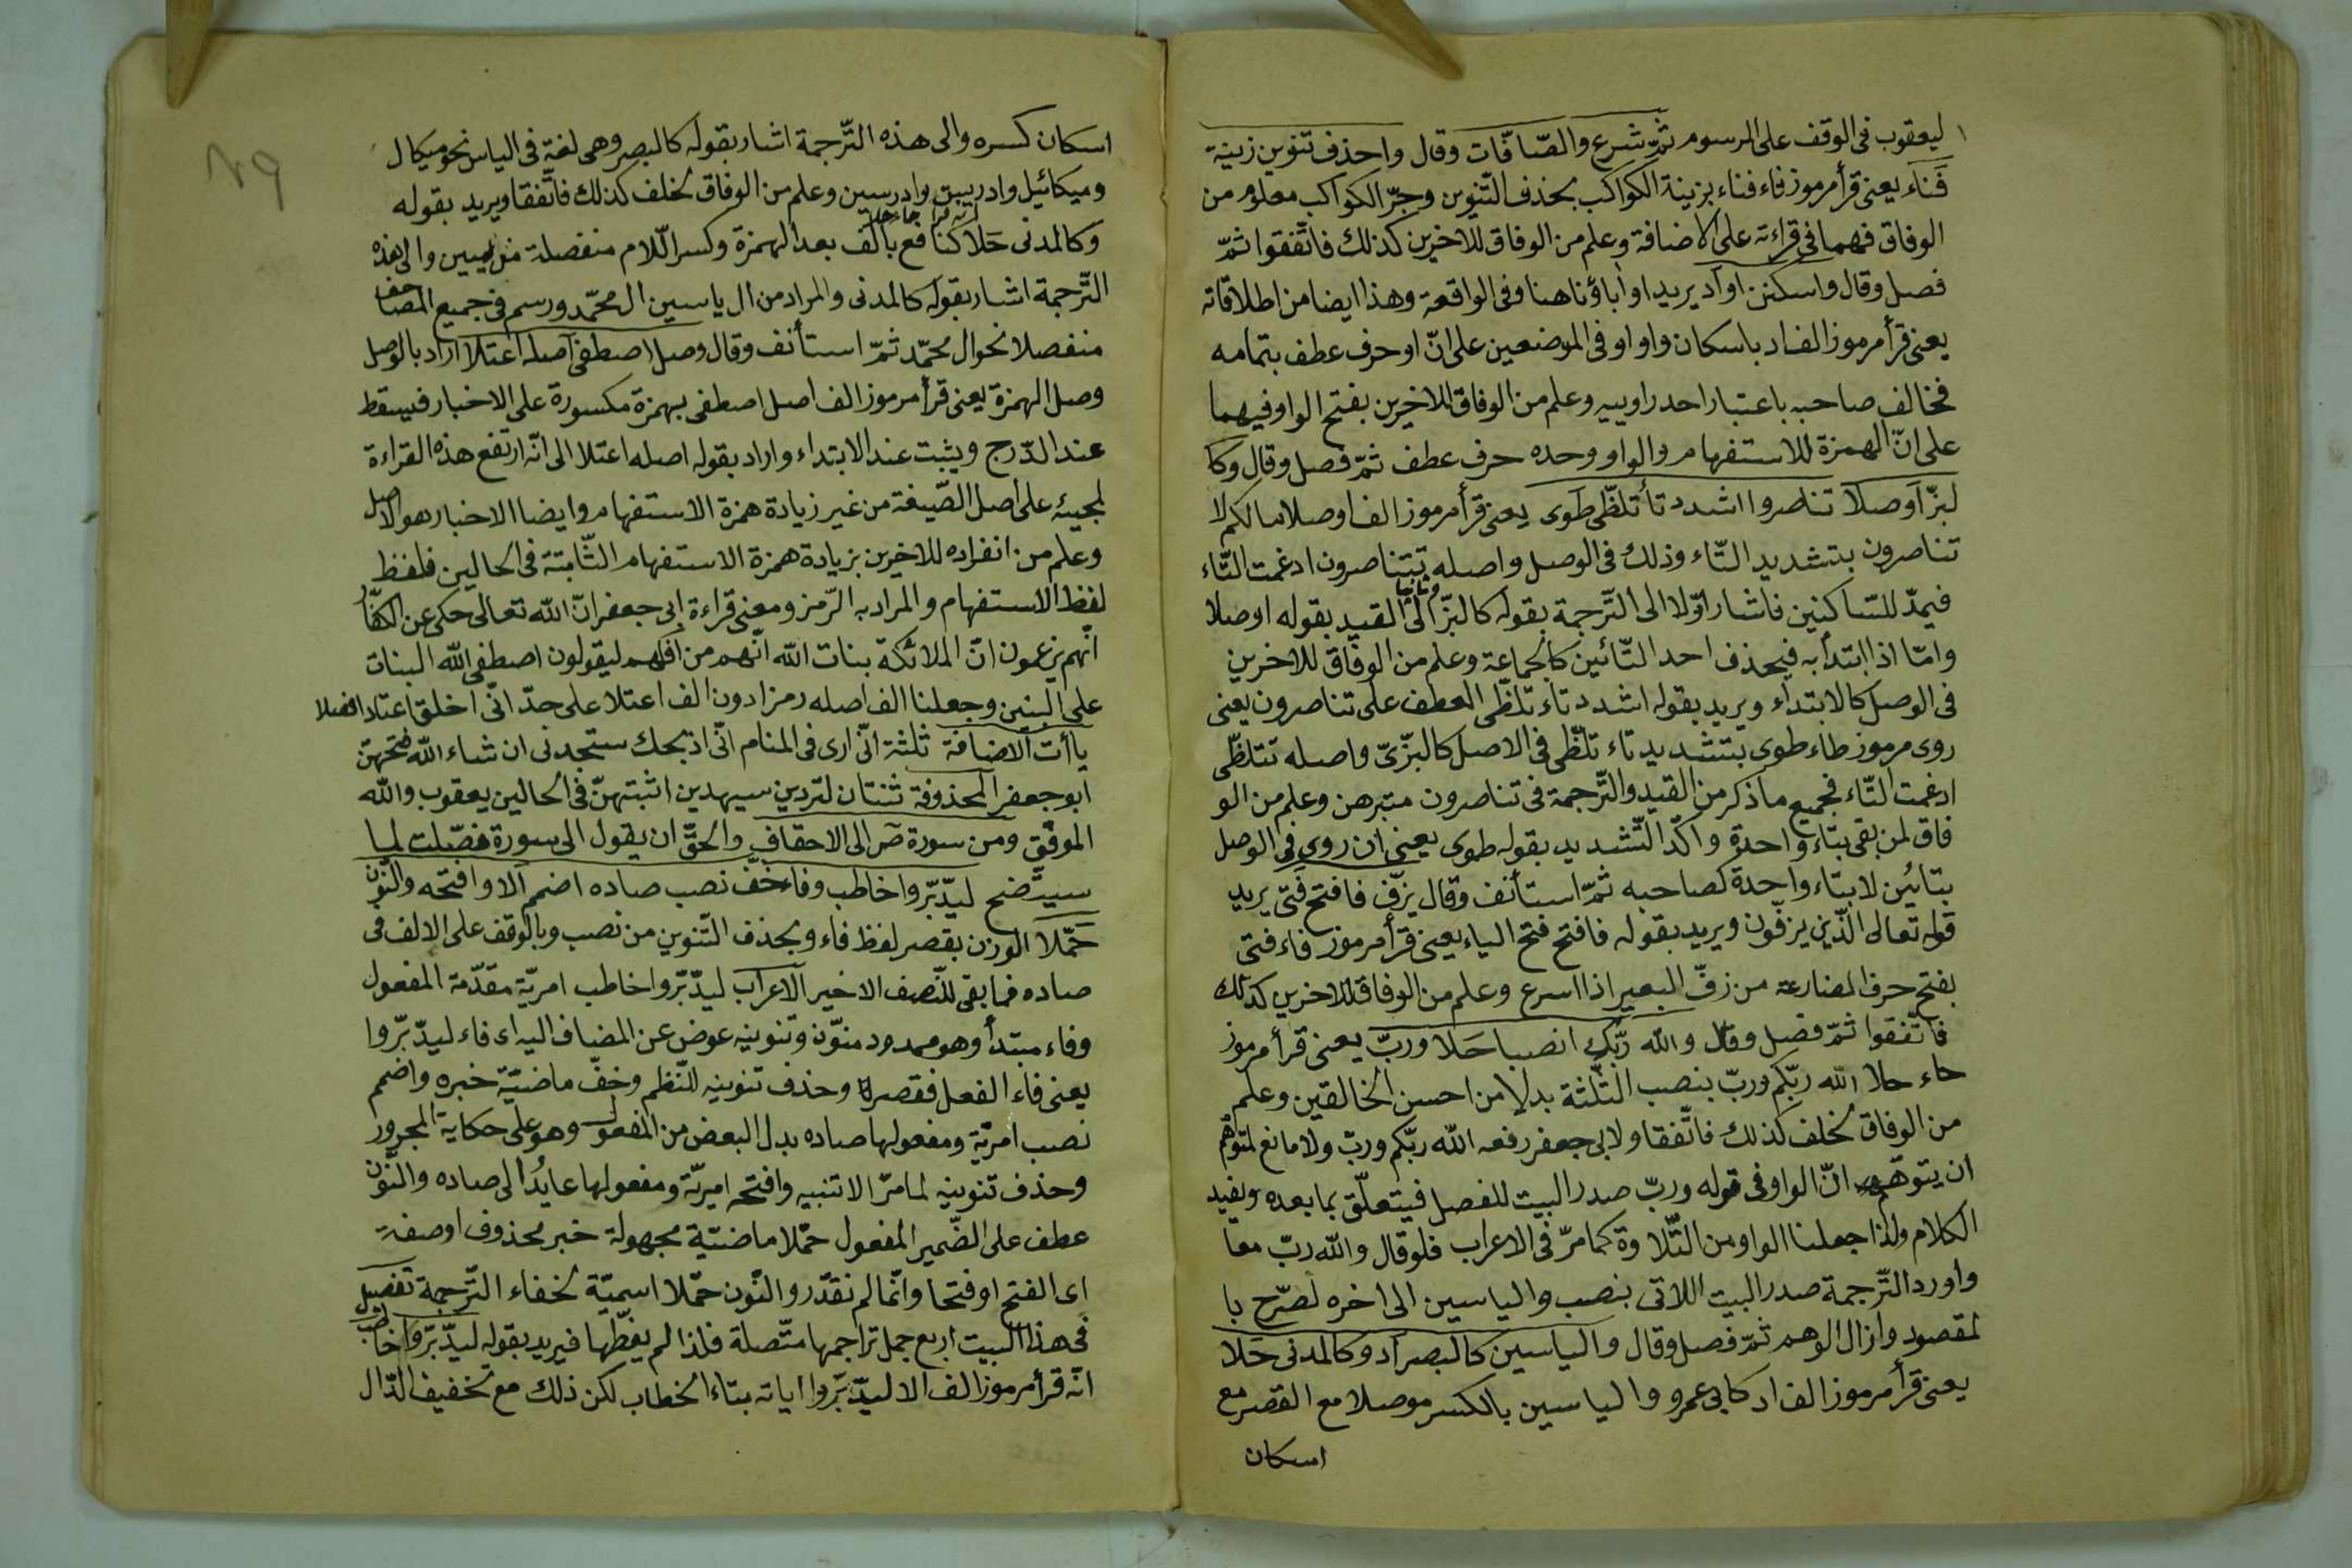 ليعقوب فى الوقف على الرسوم ثمّ شرع والصّافّات وقال واحذف تنوين زينة
فناء يعنى قرأ مرموز فاء فناء بزينة الكواكب بحذف التّنوين وجرّ الكواكب معلوم من
الوفاق فهما فى قراءته على الاضافة وعلم من الوفاق للاخرين كذلك فاتّفقوا ثمّ
فصل وقال واسكنن او اد يريد او اباؤنا هنا وفى الواقعة وهذا ايضا من اطلاقاته
يعنى قرأ مرموز الف اد باسكان واو او فى الموضعين على انّ او حرف عطف بتمامه
فخالف صاحبه باعتبار احد راوييه وعلم من الوفاق للاخرين بفتح الواو فيهما
على انّ الهمزة للاستفهام والواو وحده حرف عطف ثمّ فصل وقال وكا
لبزّ اوصلا تناصروا اشدد تا تلظّى طوى يعنى قرأ مرموز الف اوصلا مالكم لا
تناصرون بتشديد التّاء وذلك فى الوصل واصله تتناصرون ادغمت التّاء
فيمدّ للسّاكنين فاشار اوّلا الى التّرجمة بقوله كالبزّ وثانيا الى القيد بقوله اوصلا
وامّا اذا ابتدأ به فبحذف احد التّائين كالجماعة وعلم من الوفاق للاخرين
فى الوصل كالابتداء ويريد بقوله اشدد تاء تلظّى العطف على تناصرون يعنى
روى مرموز طاء طوى بتشديد تاء تلظّى فى الاصل كالبزّىّ واصله تتلظّى
ادغمت التّاء فجميع ما ذكر من القيد والتّرجمة فى تناصرون متبرهن وعلم من الو
فاق لمن بقى بتاء واحدة واكّد التّشديد بقوله طوى يعنى ان روى فى الوصل
بتائين لا بتاء واحدة كصاحبه ثمّ استأنف وقال يزفّ فافتح فتى يريد
قوله تعالى الّذين يزفّون ويريد بقوله فافتح فتح الياء يعنى قرأ مرموز فاء فتى
بفتح حرف المضارعة من زفّ البعير اذا اسرع وعلم من الوفاق للاخرين كذلك
فاتّفقوا ثمّ فصل وقال والله ربّك انصبا حلا وربّ يعنى قرأ مرموز
حاء حلا الله ربّكم وربّ بنصب الثّلثة بدلا من احسن الخالقين وعلم
من الوفاق لخلف كذلك فاتّفقا ولابى جعفر رفعه الله ربّكم وربّ ولا مانع لمتوّهم
ان يتوهّم انّ الواو فى قوله وربّ صدر البيت للفصل فيتعلّق بما بعده ويفيد
الكلام ولذا جعلنا الواو من التّلاوة كما مرّ فى الاعراب فلو قال والله ربّ معا
واورد التّرجمة صدر البيت اللاتى بنصب والياسين الى اخره لصرّح با
لمقصود وازال الوهم ثمّ فصل وقال والياسين كالبصر اد وكالمدنى حلا
يعنى قرأ مرموز الف اد كابى عمرو والياسين بالكسر موصلا مع القصر مع
اسكان
اسكان كسره والى هذه التّرجمة اشار بقوله كالبصر وهى لغة فى الياس نحو ميكال
وميكائيل وادريس وادرسين وعلم من الوفاق لخلف كذلك فاتّفقا ويريد بقوله
وكالمدنى حلا كنافع بالف بعد الهمزة وكسر اللّام منفصلة من يسين والى هذه
التّرجمة اشار بقوله كالمدنى والمراد من ال ياسين ال محمّد ورسم فى جميع المصاحف
منفصلا نحو ال محمّد ثمّ استأنف وقال وصل اصطفى اصله اعتلا اراد بالوصل
وصل الهمزة يعنى قرأ مرموز الف اصل اصطفى بهمزة مكسورة على الاخبار فيسقط
عند الدّرج ويثبت عند الابتداء واراد بقوله اصله اعتلا الى انّه ارتفع هذه القراءة
لمجيئه على اصل الصّيغة من غير زيادة همزة الاستفهام وايضا الاخبار هو الاصل
وعلم من انفراده للاخرين بزيادة همزة الاستفهام الثّابتة فى الحالين فلفظ
لفظ الاستفهام والمراد به الرّمز ومعنى قراءة ابى جعفر انّ الله تعالى حكى عن الكفّار
انّهم يزعمون انّ الملائكة بنات الله انّهم من افكهم ليقولون اصطفى الله البنات
على البنين وجعلنا الف اصله رمزا دون الف اعتلا على حدّ انّى اخلق اعتاد افصلا
ياأت الاضافة ثلثة انّى ارى فى المنام انّى اذبحك ستجدنى ان شاء الله فتحهنّ
ابو جعفر المحذوفة ثنتان لتردين سيهدين اثبتهنّ فى الحالين يعقوب والله
الموفّق ومن سورة ص الى الاحقاف والحقّ ان يقول الى سورة فصّلت لما
سيتّضح ليدّبّروا خاطب وفا خفّ نصب صاده اضمم الا وافتحه والنّون
حمّلا الوزن بقصر لفظ فاء وبحذف التّنوين من نصب وبالوقف على الالف فى
صاده فما بقى للنّصف الاخير الاعراب ليدّبّروا خاطب امريّة مقدّمة المفعول
وفاء مبتدأ وهو ممدود منوّن وتنوينه عوض عن المضاف اليه اى فاء ليدّبّروا
يعنى فاء الفعل فقصره وحذف تنوينه للنّظم وخفّ ماضيّة خبره واضمم
نصب امريّة ومفعولها صاده بدل البعض من المفعول وهو على حكاية المجرور
وحذف تنوينه لما مرّ الا تنبيه وافتحه امريّة ومفعولها عائد الى صاده والنّون
عطف على الضّمير المفعول حمّلا ماضيّة مجهولة خبر محذوف او صفة
اى الفتح او فتحا وانّما لم نقدّر والنّون حمّلا اسميّة لخفاء التّرجمة تفصيل
فى هذا البيت اربع جمل تراجمها متّصلة فلذا لم يغطّها فيريد بقوله ليدّبّروا خاطب
انّه قرأ مرموز الف الا ليدّبّروا اياته بتاء الخطاب لكن ذلك مع تخفيف الدّال